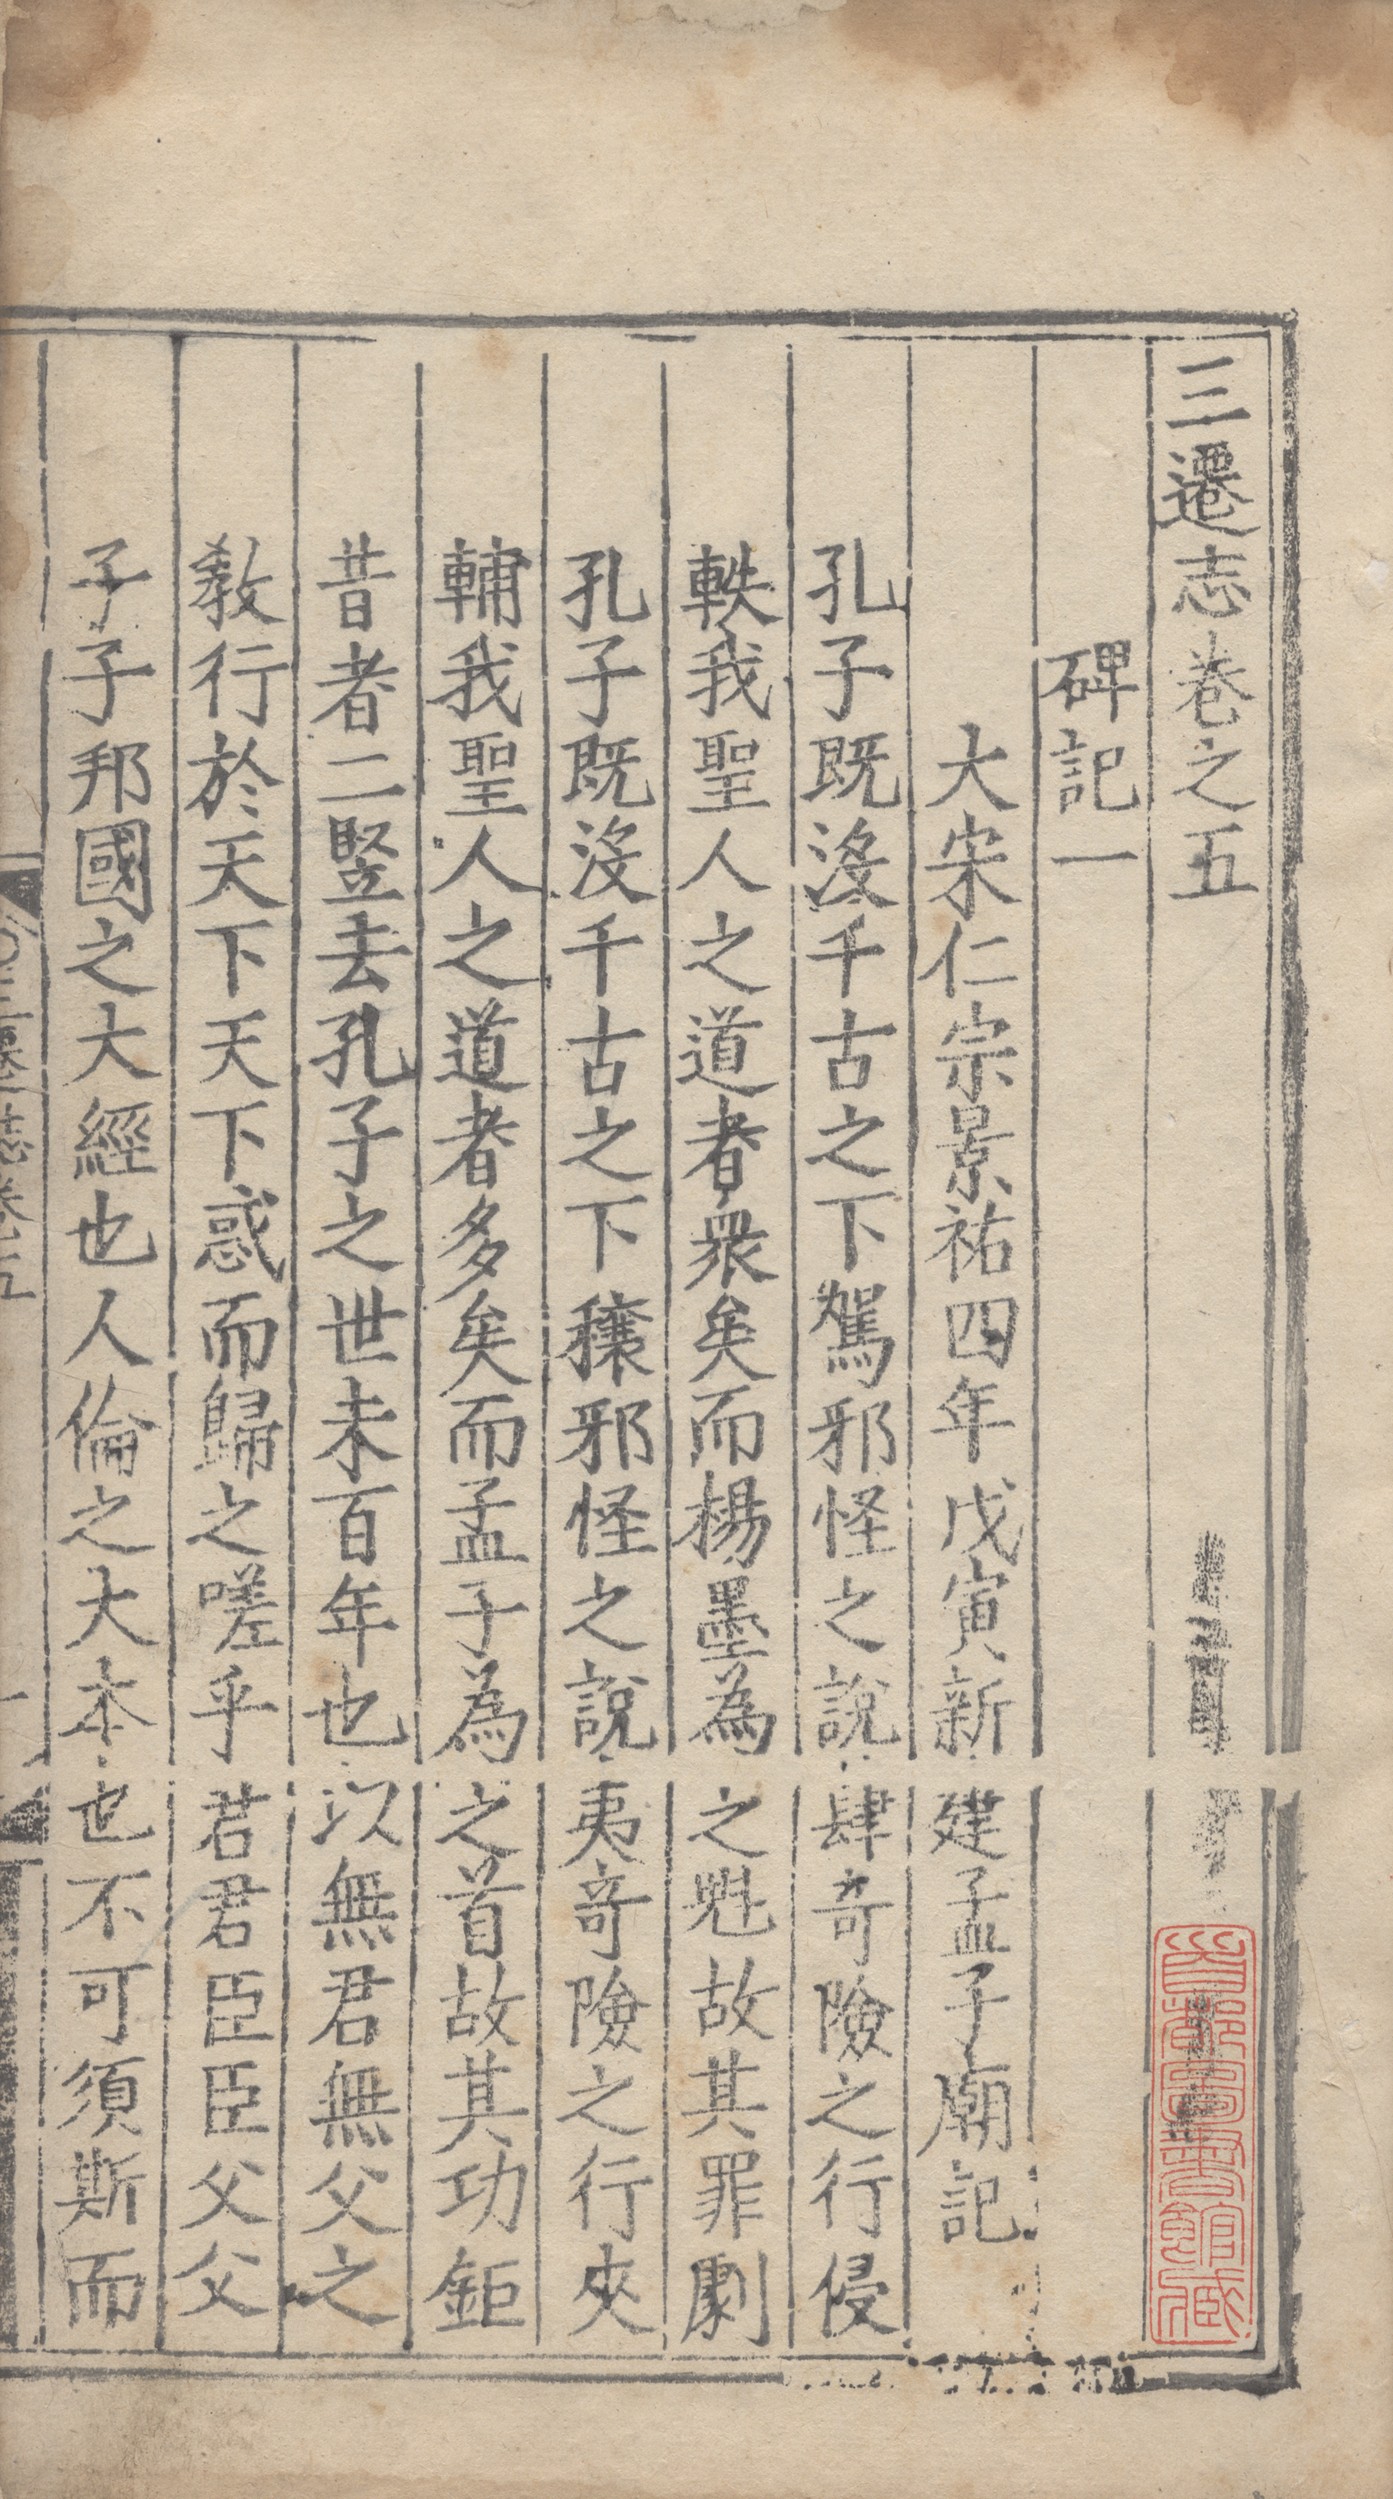 三遷志卷之五
碑記一
大宋仁宗景祐四年戊寅新建孟子廟記
孔子既沒千古之下駕邪怪之說肆奇險之行侵
軼我聖人之道者衆矣而楊墨為之魁故其罪劇
孔子既沒千古之下穰邪怪之說夷竒險之行夾
輔我聖人之道者多矣而孟子為之首故其功鉅
昔者二竪去孔子之世未百年也以無君無父之
敎行於天下天下惑而歸之嗟乎君君臣臣父父
子子邦國之大經也人倫之大本也不可須斯而
三遷志卷五
一
首都圖書館藏